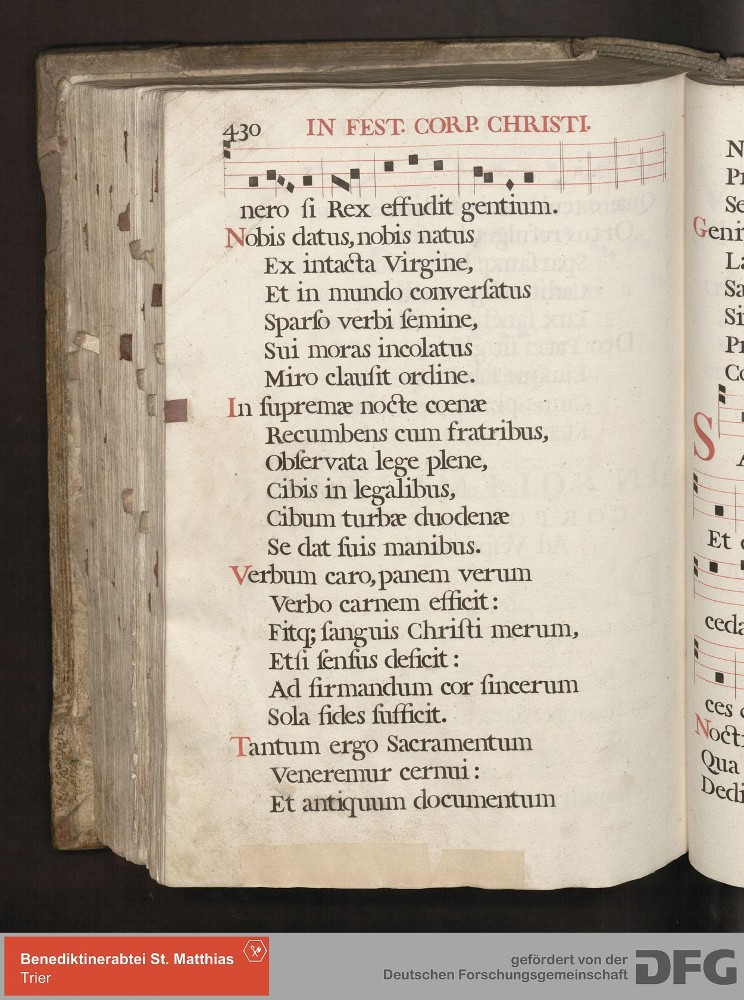 430 IN FEST. CORP. CHRISTI.
nero ſi Rex effudit gentium.
Nobis datus, nobis natus
Ex intacta Virgine,
Et in mundo converſatus
Sparſo verbi ſemine,
Sui moras incolatus
Miro clauſit ordine.
In ſupremæ nocte cœnæ
Recumbens cum fratribus,
Obſervata lege plene,
Cibis in legalibus,
Cibum turbæ duodenæ
Se dat ſuis manibus.
Verbum caro, panem verum
Verbo carnem efficit:
Fitq; ſanguis Chriſti merum,
Etſi ſenſus deficit:
Ad firmandum cor ſincerum
Sola fides ſufficit.
Tantum ergo Sacramentum
Veneremur cernui:
Et antiquum documentum
N
Pr
Se
Geni
La
Sa
Si
Pr
Co
S
A
Et
ceda
ces
Nocti
Qua
Dedi
Benediktinerabtei St. Matthias
Trier
gefördert von der
Deutschen Forschungsgemeinschaft
DFG